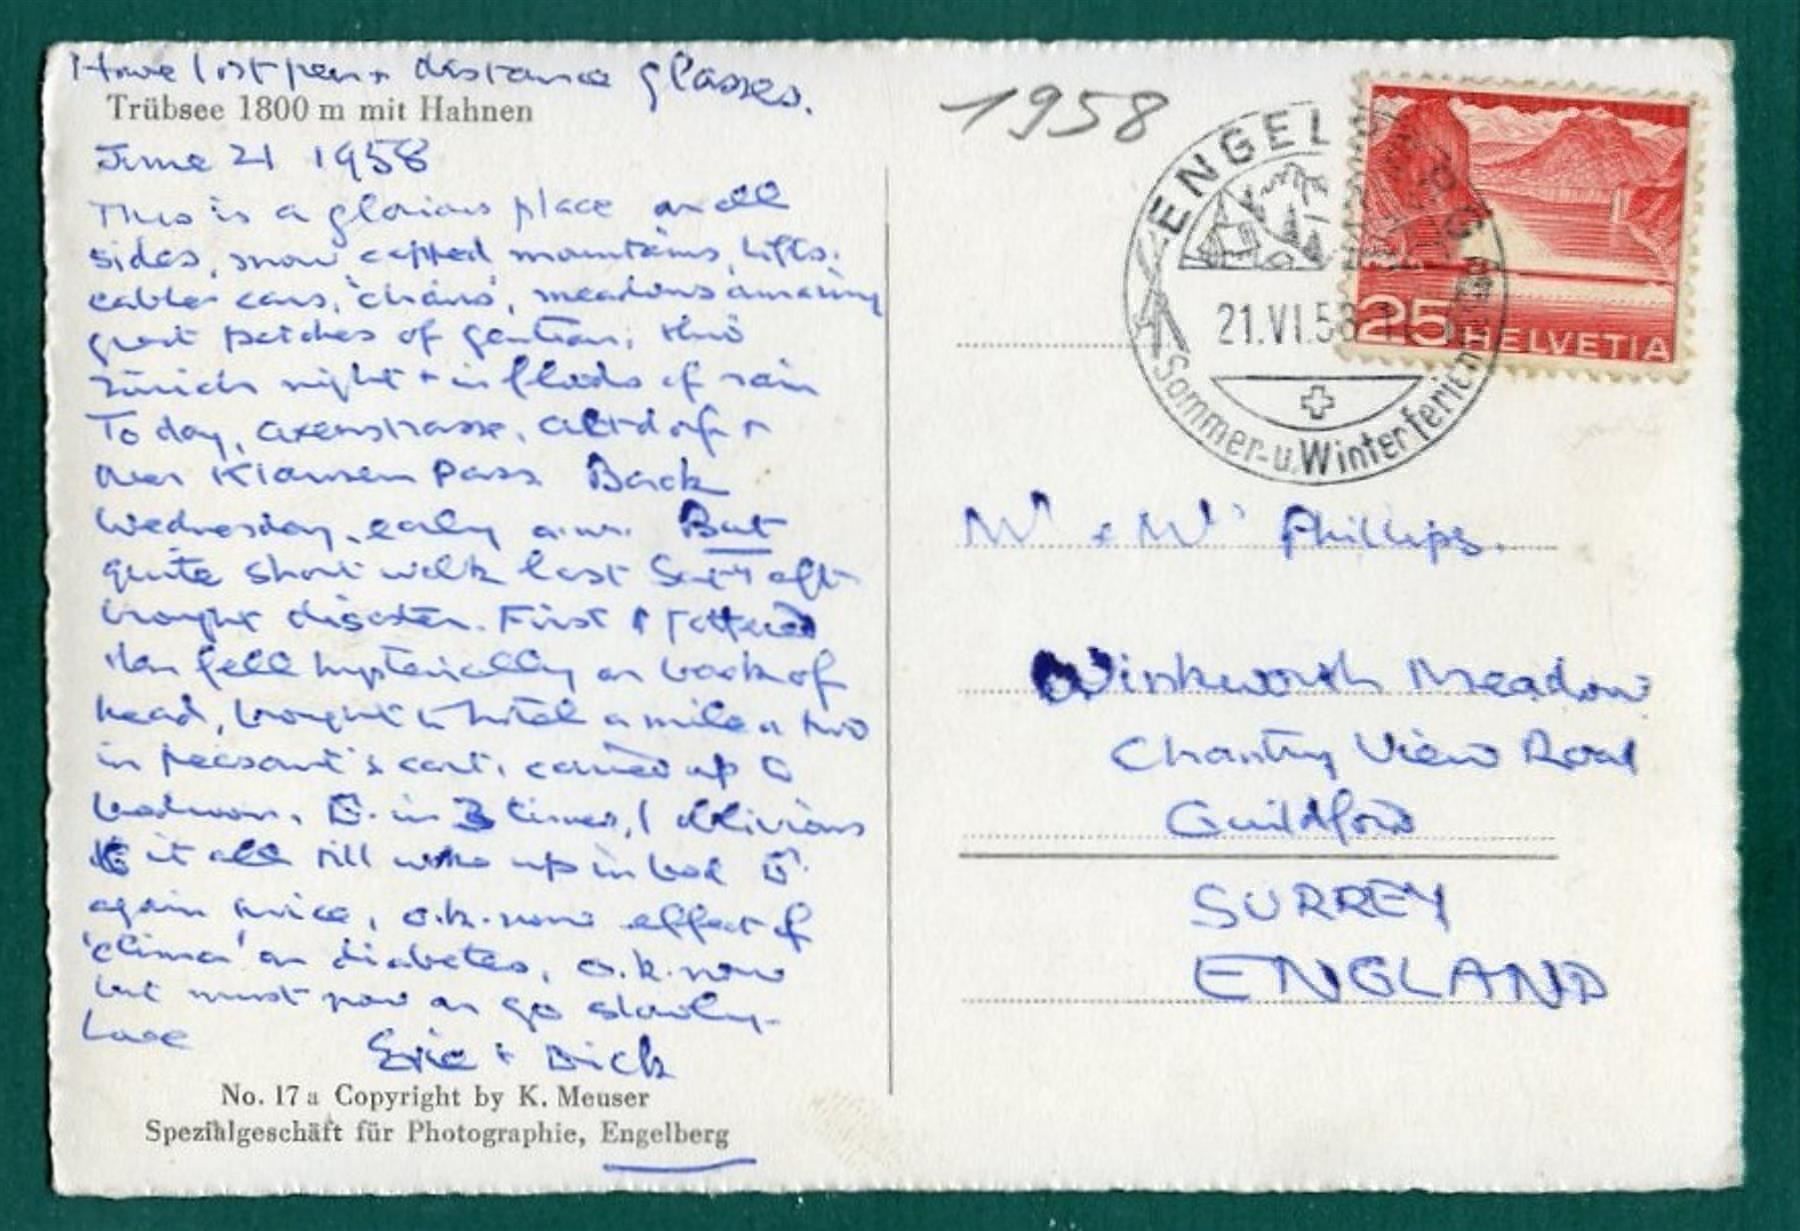 Have lost pen + distance glasses.
Trübsee 1800 m mit Hahnen
June 21 1958
This is a glorious place on all
sides, snow capped mountains, lifts,
cable cars, 'chairs', meadows amazing
great patches of gentian,
Zürich night + in floods of rain
Today, Axenstrasse, Altdorf +
over Klausen Pass Back
Wednesday, early a.m. But
quite short walk last Sat'y aft
brought disaster. First I tottered
then fell hysterically on back of
head, brought to hotel a mile or two
in peasant's cart, carried up to
bedroom, in 3 times, I oblivious
to it all till woke up in bed
again twice, o.k. now effect of
'clima' on diabetes, o.k. now
but must now on go slowly.
Love
Eric + Dick
No. 17 a Copyright by K. Meuser
Spezialgeschäft für Photographie, Engelberg
1958
ENGELBERG
21.VI.58
Sommer- u. Winterferien
25 HELVETIA
Mr & Mrs Phillips.
Winkworth Meadow
Chantry View Road
Guildford
SURREY
ENGLAND